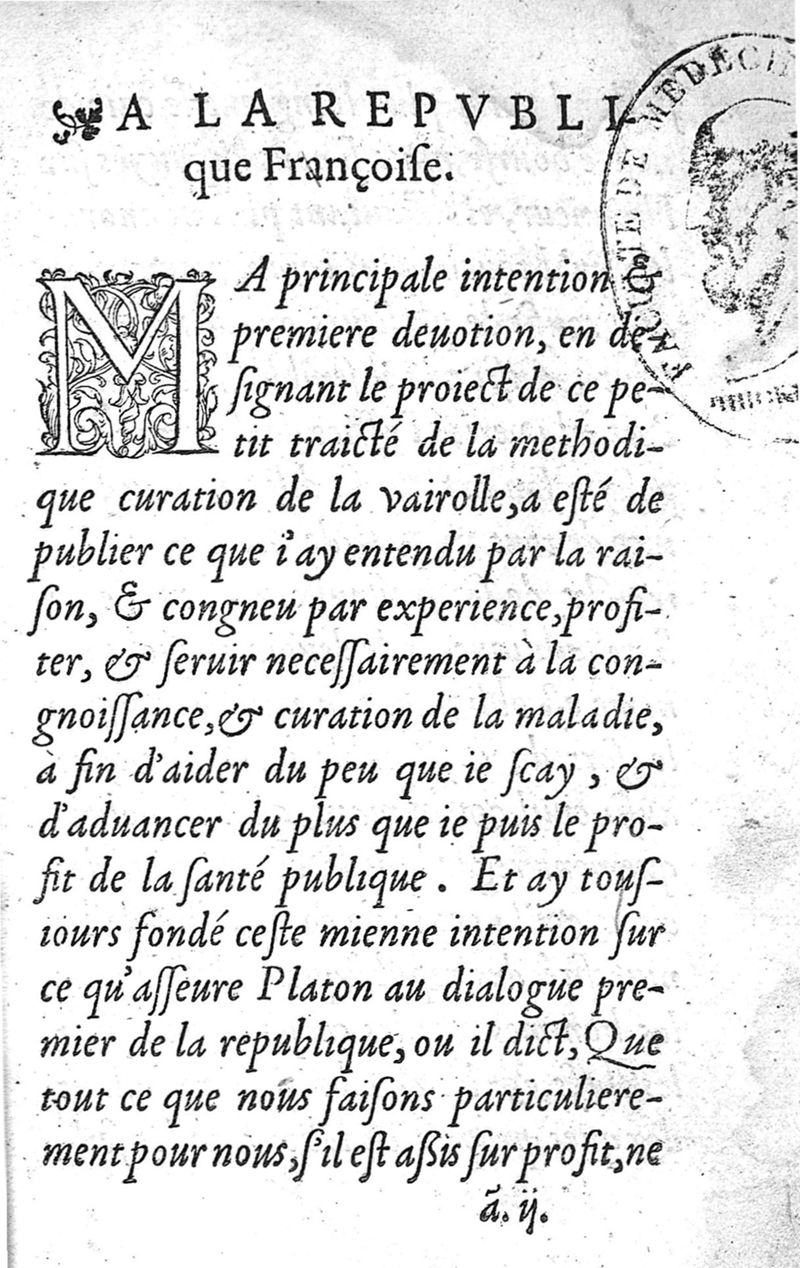 A LA REPVBLI
que Françoiſe.
MA principale intention &
premiere deuotion, en de-
ſignant le proiect de ce pe-
tit traicté de la methodi-
que curation de la vairolle, a eſté de
publier ce que i'ay entendu par la rai-
ſon, & congneu par experience, profi-
ter, & ſeruir neceſſairement à la con-
gnoiſſance, & curation de la maladie,
à fin d'aider du peu que ie ſcay , &
d'aduancer du plus que ie puis le pro-
fit de la ſanté publique . Et ay touſ-
iours fondé ceſte mienne intention ſur
ce qu'aſſeure Platon au dialogue pre-
mier de la republique, ou il dict, Que
tout ce que nous faiſons particuliere-
ment pour nous, ſ'il eſt aßis ſur profit, ne
ã. ij.
FACULTE DE MEDECI